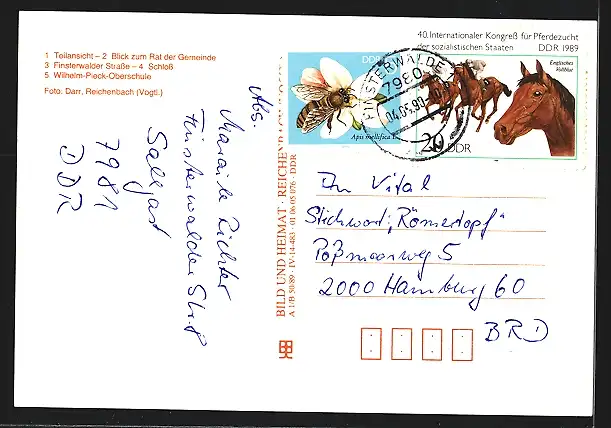 1 Teilansicht – 2 Blick zum Rat der Gemeinde
3 Finsterwalder Straße – 4 Schloß
5 Wilhelm-Pieck-Oberschule
Foto: Darr, Reichenbach (Vogtl.)
Abs.
Richter
Finsterwalder Str.
Sallgast
7981
DDR
BILD UND HEIMAT · REICHENBACH
A 1/B 50/89 · IV-14-483 · 01 06 05 076 · DDR
DDR
Apis mellifica L.
FINSTERWALDE
7980
04.05.90
40. Internationaler Kongreß für Pferdezucht
der sozialistischen Staaten DDR 1989
Englisches
Vollblut
20 DDR
An Vital
Stichwort: "Römertopf"
Poßmoorweg 5
2000 Hamburg 60
BRD